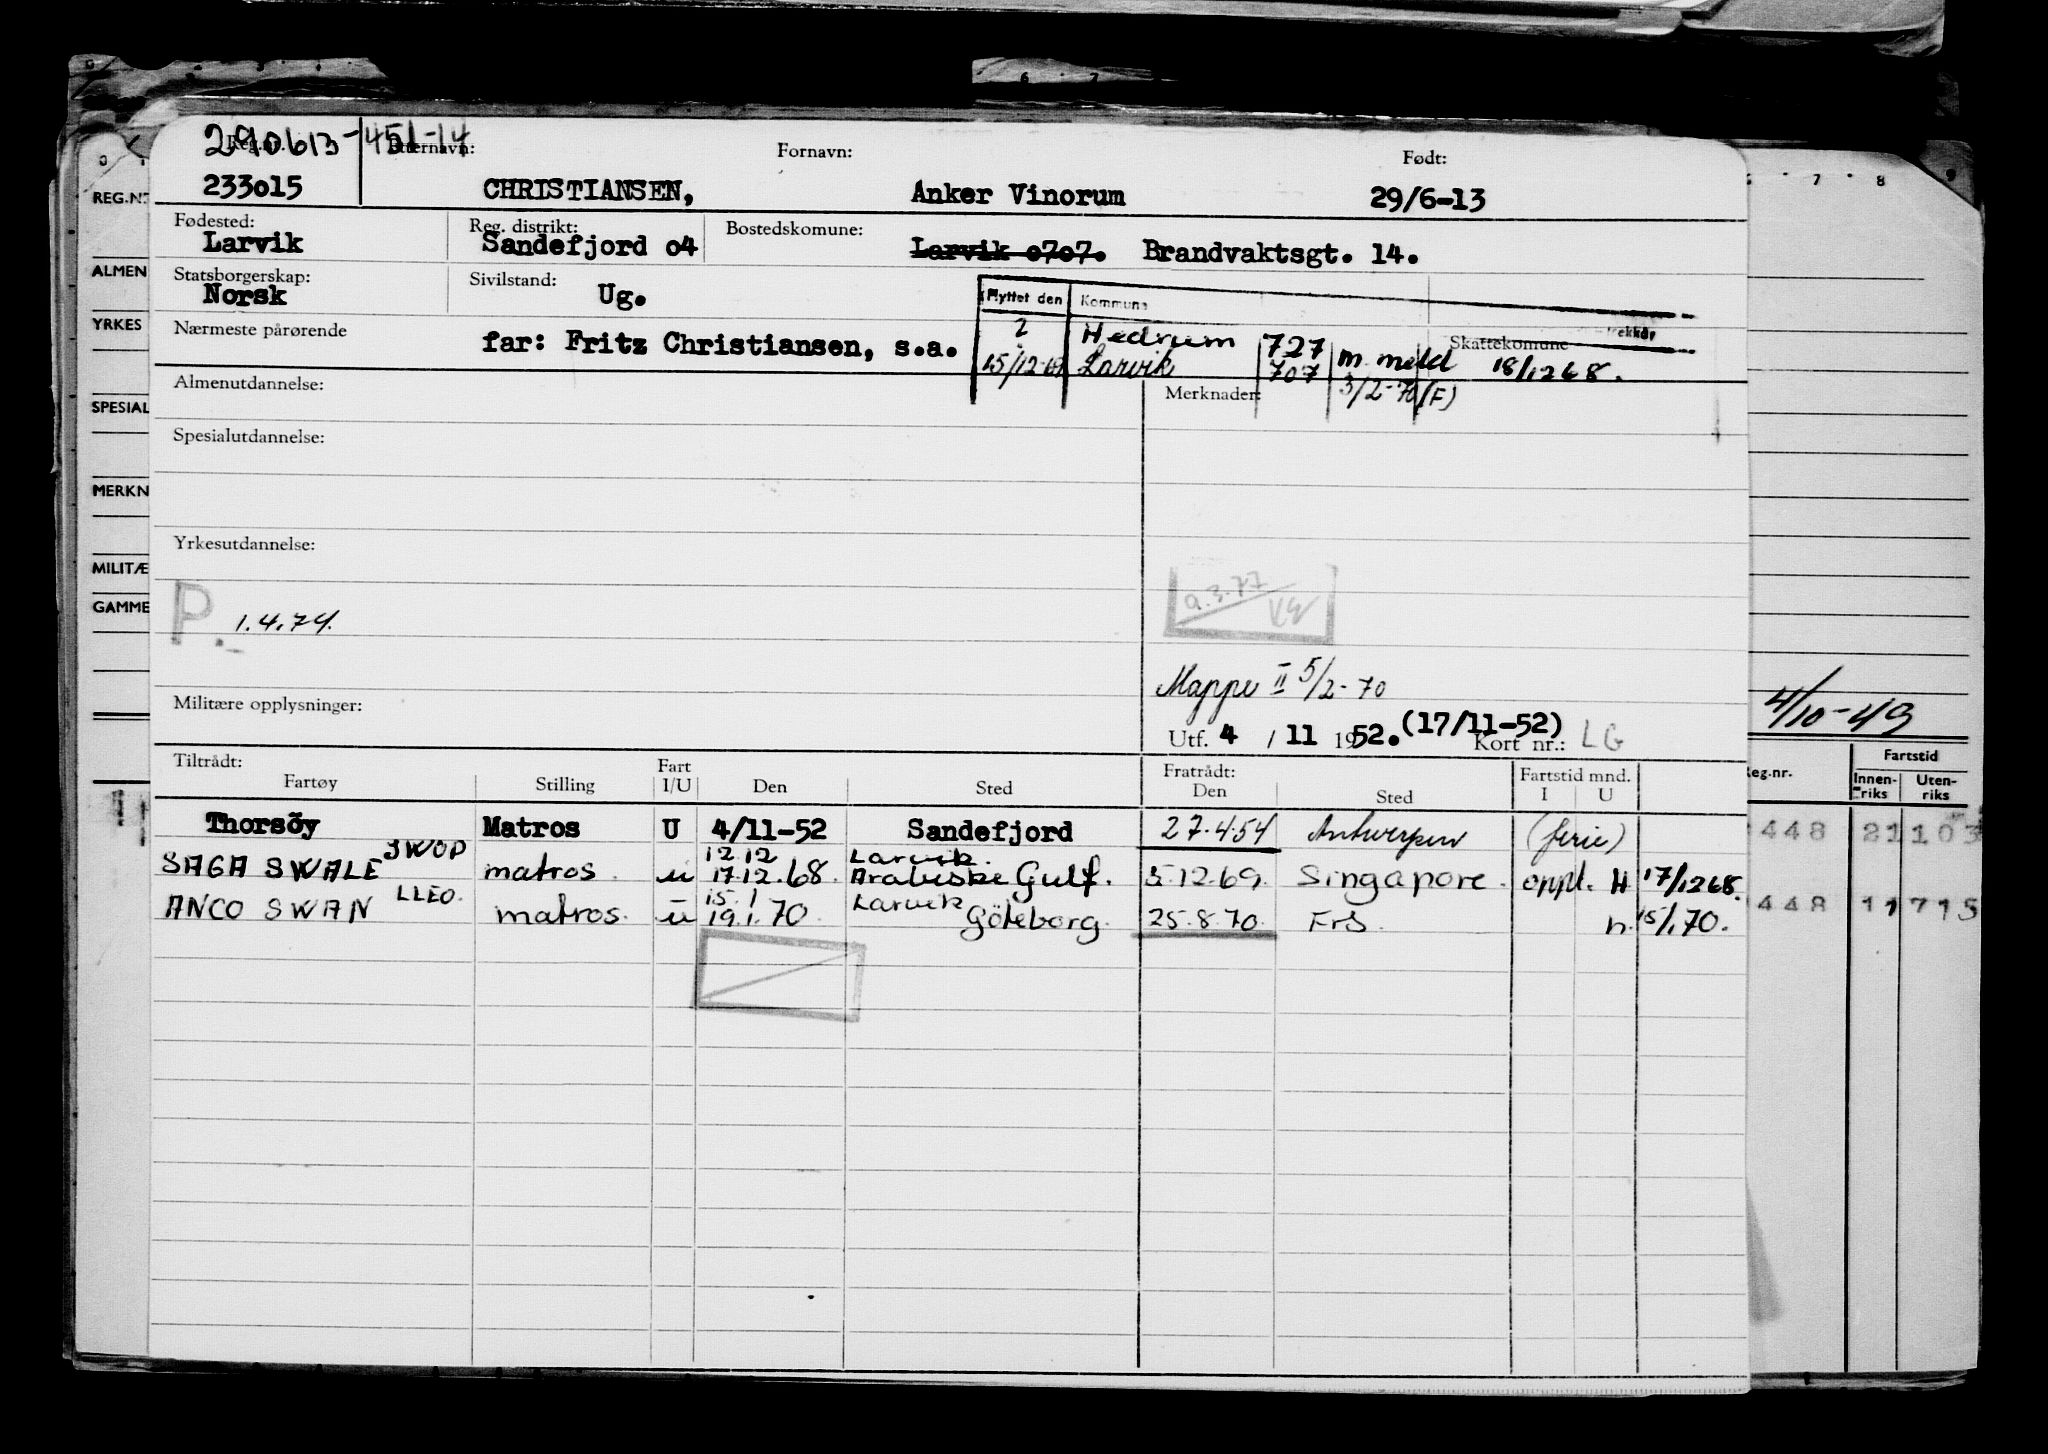 6 7
290613-451-14
Reg.nr. Etternavn: Fornavn: Født:
233o15 CHRISTIANSEN, Anker Vinorum 29/6-13
Fødested: Reg. distrikt: Bostedskomune:
Larvik Sandefjord o4 Larvik o7o7. Brandvaktsgt. 14.
Statsborgerskap: Sivilstand:
Norsk Ug.
Flyttet den Kommune
Nærmeste pårørende
far: Fritz Christiansen, s.a.
2 Hedrum 727 Skattekomune
15/12-68 Larvik 707 m. meld 18/12 68.
3/2-70 (F)
Almenutdannelse: Merknader:
Spesialutdannelse:
Yrkesutdannelse:
P. 1.4.74.
9.3.77
Mappe II 5/2-70
Militære opplysninger:
Utf. 4 / 11 1952. (17/11-52) Kort nr.: LG
Tiltrådt: Fratrådt:
Fartøy Stilling Fart I/U Den Sted Den Sted Fartstid mnd. I U
Thorsöy Matros U 4/11-52 Sandefjord 27.4.54 Antwerpen (ferie)
JWOP 12.12 Larvik.
SAGA SWALE matros. u 17.12.68. Arabiske Gulf. 5.12.69. Singapore. oppl. H 17/12 68.
LLEO. 15.1 Larvik
ANCO SWAN matros. u 19.1.70. Göteborg. 25.8.70. FrS. h. 15/1.70.
REG.NR
ALMEN
YRKES
SPESIAL
MERKN
MILITÆ
GAMME
7 8 9
4/10-49
Reg.nr. Fartstid
Innen-riks Uten-riks
448 21 103
448 11 715